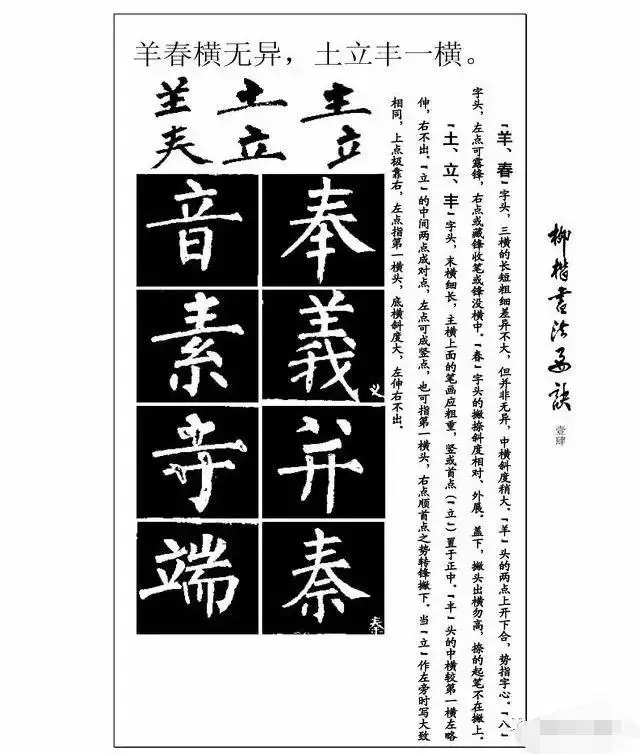 羊春横无异，土立丰一横。
𦍌 土 龶
𡗗 立 立
音 奉
素 義 义
寺 并
端 秦 秦
柳楷書法要訣 壹肆
“羊、春”字头，三横的长短粗细差异不大，但并非无异，中横斜度稍大。“羊”头的两点上开下合，势指字心。“八”
字头，左点可露锋，右点或藏锋收笔或锋没横中。“春”字头的撇捺斜度相对、外展。盖下，撇头出横勿高，捺的起笔不在撇上。
“土、立、丰”字头，末横细长，主横上面的笔画应粗重，竖或首点（“立”）置于正中。“丰”头的中横较第一横左略
伸，右不出。“立”的中间两点成对点，左点可成竖点，也可指第一横头，右点顺首点之势转锋撇下。当“立”作左旁时写大致
相同，上点极靠右，左点指第一横头，底横斜度大，左伸右不出.